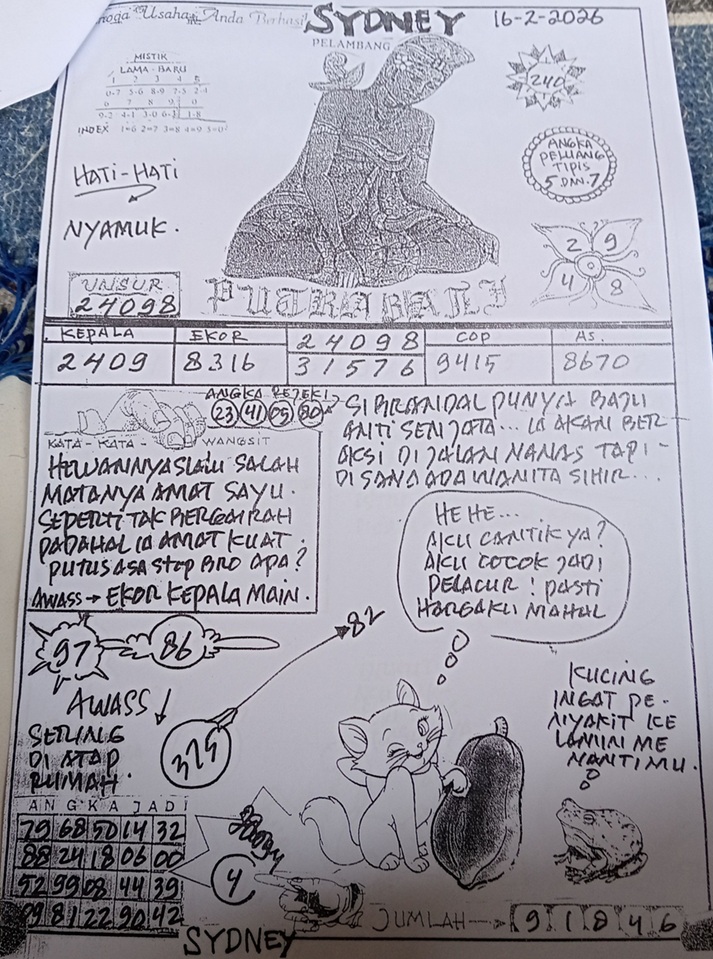 Usaha Anda Berhasil
SYDNEY
16-2-2026
PELAMBANG
MISTIK
LAMA-BARU
1 2 3 4 5
0-7 5-6 8-9 7-5 2-4
6 7 8 9
9-2 4-1 3-0 6-3 1-8
INDEX 1=6 2=7 3=8 4=9 5=0
240
ANGKA
PELUANG
TIPIS
5 DAN 7
HATI-HATI
NYAMUK.
2 9
4 8
UNSUR
24098
PUTRA BALI
KEPALA EKOR 24098 COP AS.
2409 8316 31576 9415 8670
ANGKA REJEKI
23 41 05 80
KATA-KATA- WANGSIT
HEWANNYA SLALU SALAH
MATANYA AMAT SAYU.
SEPERTI TAK BERGAIRAH
PADAHAL IA AMAT KUAT.
PUTUS ASA STOP BRO APA?
AWASS → EKOR KEPALA MAIN.
SI BRANDAL PUNYA BAJU
ANTI SENJATA... IA AKAN BER-
AKSI DI JALAN NANAS TAPI-
DI SANA ADA WANITA SIHIR...
HE HE...
AKU CANTIK YA?
AKU COCOK JADI
PELACUR! PASTI
HARGAKU MAHAL
97 86
82
AWASS ↓
SERING
DI ATAP
RUMAH.
325
KUCING
INGAT PE-
NYAKIT KE
LAMIN ME
NANTIMU.
ANGKA JADI
79 68 50 14 32
88 24 18 06 00
52 99 08 44 39
09 81 22 90 42
4
JUMLAH → 9 1 8 4 6
SYDNEY